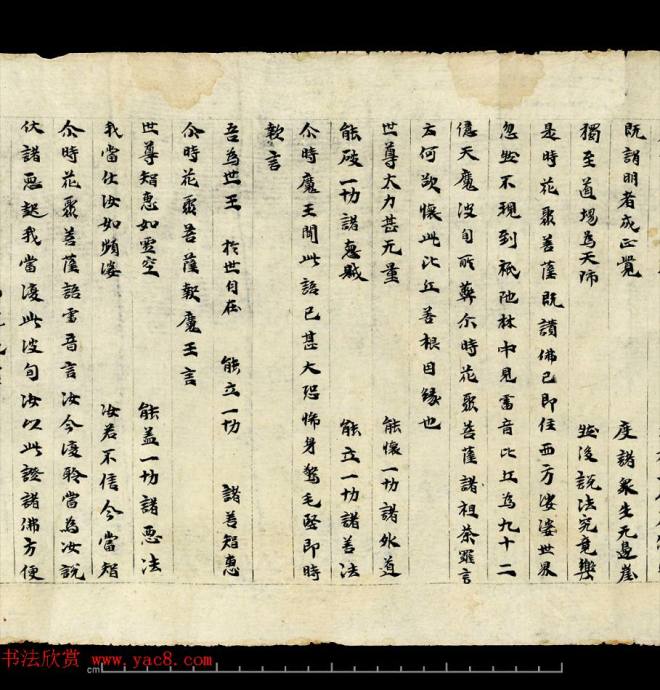 既謂明者成正覺 度諸衆生无邊崖
獨至道場為天師 然後說法究竟樂
是時花聚菩薩既讃佛已即往西方娑婆世界
忽然不現到祇陁林中見雷音比丘為九十二
億天魔波旬所弊尒時花聚菩薩語祖荼羅言
云何欲懷此比丘善根因緣也
世尊大力甚无量 能懷一切諸外道
能破一切諸惡賊 能立一切諸善法
尒時魔王聞此語已甚大恐怖身驚毛竪即時
軟言
吾為世王 於世自在 能立一切 諸善智惠
尒時花聚菩薩軟魔王言
世尊智惠如虛空 能盖一切諸惡法
我當仕汝如頻婆 汝若不信今當智
尒時花聚菩薩語雷音言汝今復聆當為汝說
伏諸惡趣我當復此波旬汝以此證諸佛方便
书法欣赏 www.yac8.com
cm